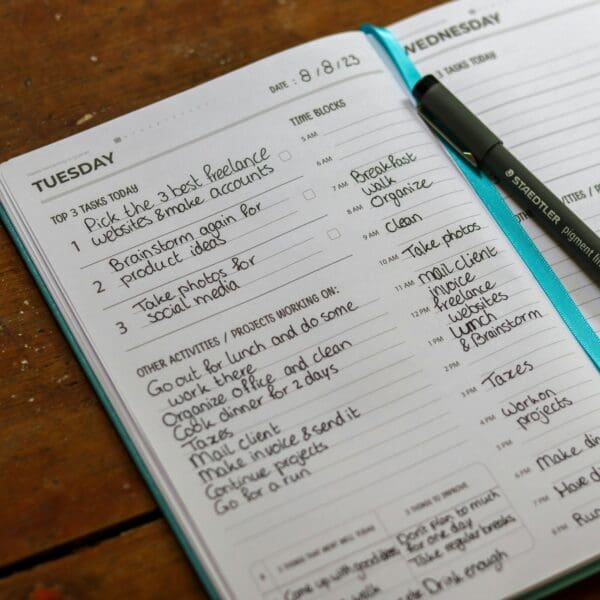 TUESDAY
DATE : 8/8/23
TOP 3 TASKS TODAY
1 Pick the 3 best freelance
websites & make accounts
2 Brainstorm again for
product ideas
3 Take photos for
social media
OTHER ACTIVITIES / PROJECTS WORKING ON:
Go out for lunch and do some
work there
Organize office and clean
Cook dinner for 2 days
Taxes
Mail client
Make invoice & send it
Continue projects
Go for a run
3 THINGS THAT WENT WELL TODAY
Came up with good
walk
3 THINGS TO IMPROVE
Don't plan to much
for one day
Take regular breaks
Drink enough
TIME BLOCKS
5 AM
6 AM
7 AM Breakfast
walk
8 AM Organize
9 AM Clean
10 AM Take photos
11 AM mail client
invoice
12 PM freelance
websites
1 PM Lunch
& Brainstorm
2 PM
3 PM Taxes
4 PM work on
projects
5 PM
6 PM Make
7 PM Have
8 PM Run
WEDNESDAY
3 TASKS TODAY
STAEDTLER pigment